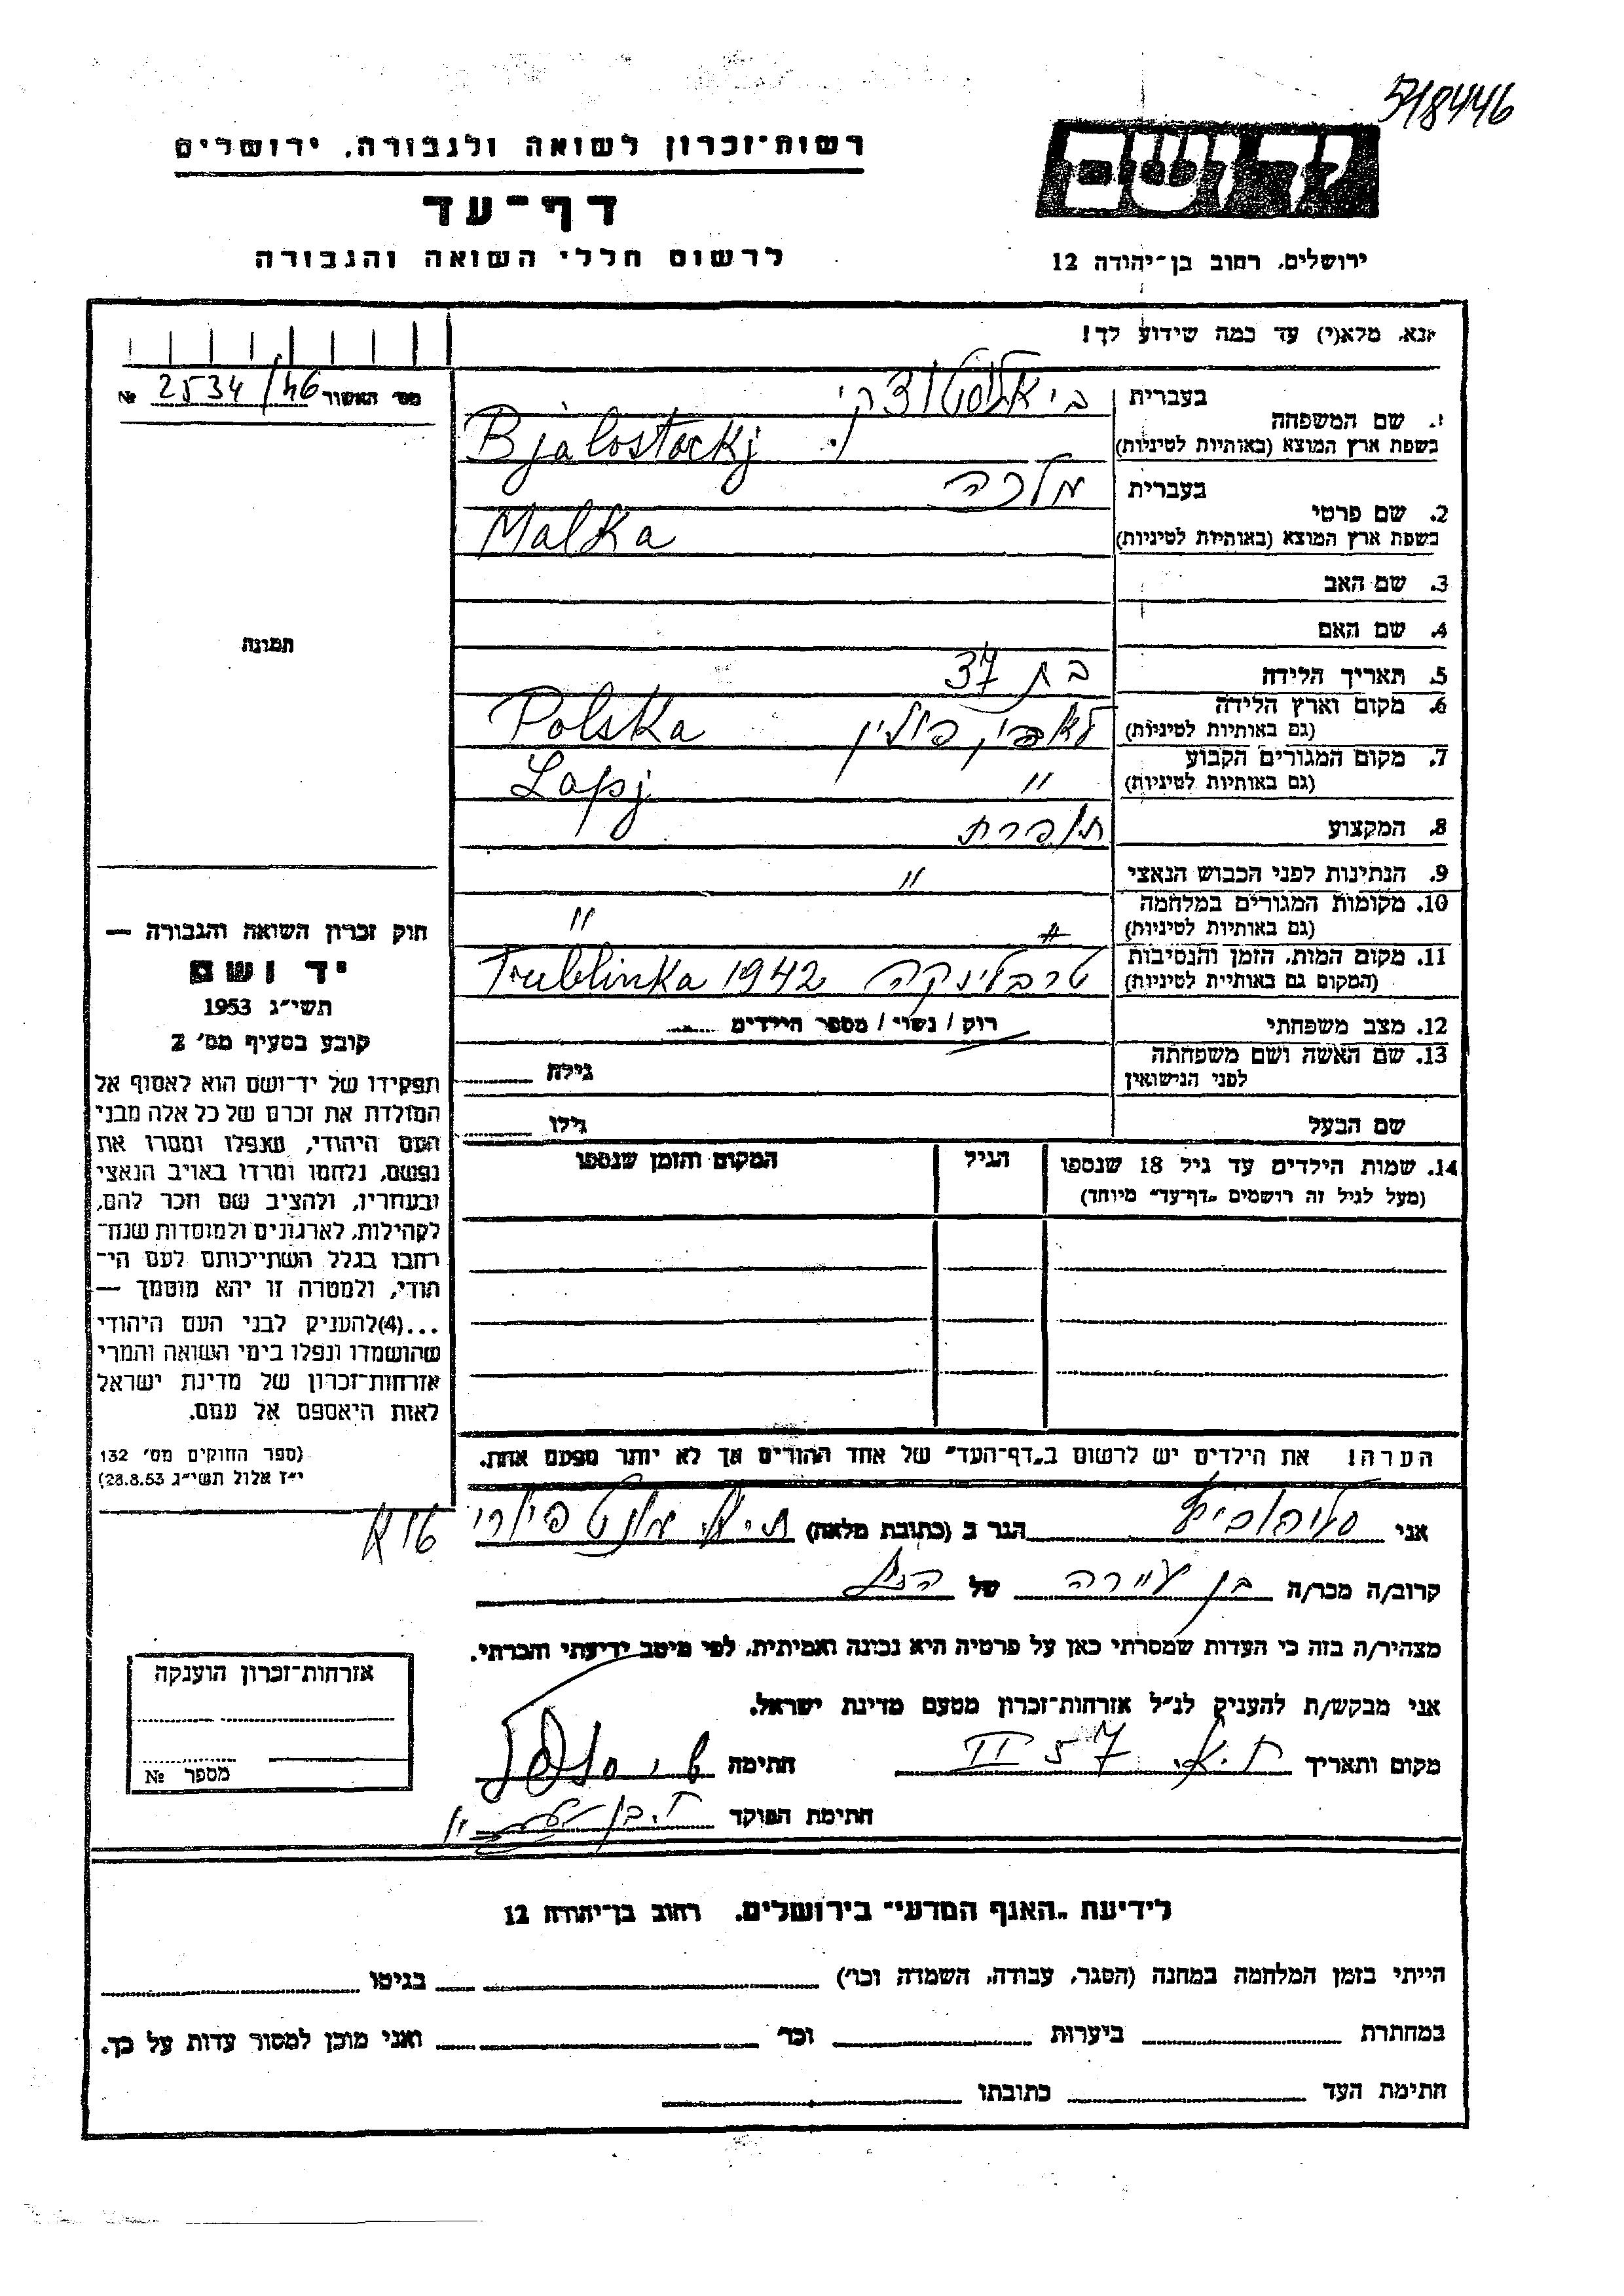 5/18446
רשות-זכרון לשואה ולגבורה, ירושלים
דף-עד
לרשום חללי השואה והגבורה
יד ושם
ירושלים, רחוב בן-יהודה 12
אנא, מלא(י) עד כמה שידוע לך!
מס׳ האשור 2534/46 №
תמונה
1. שם המשפחה בעברית ביאלוסטוצקי
בשפת ארץ המוצא (באותיות לטיניות) Bjalostockj
2. שם פרטי בעברית מלכה
בשפת ארץ המוצא (באותיות לטיניות) Malka
3. שם האב
4. שם האם
5. תאריך הלידה בת 37
6. מקום וארץ הלידה (גם באותיות לטיניות) לאפי, פולין Polska
7. מקום המגורים הקבוע (גם באותיות לטיניות) " Lapj
8. המקצוע תופרת
9. הנתינות לפני הכבוש הנאצי "
10. מקומות המגורים במלחמה (גם באותיות לטיניות) " "
11. מקום המות, הזמן והנסיבות (המקום גם באותיות לטיניות) טרבלינקה Trublinka 1942
12. מצב משפחתי רוק / נשוי / מספר הילדים
13. שם האשה ושם משפחתה לפני הנישואין גילה
שם הבעל גילו
14. שמות הילדים עד גיל 18 שנספו הגיל המקום והזמן שנספו
(מעל לגיל זה רושמים „דף-עד" מיוחד)
הערה! את הילדים יש לרשום ב„דף-העד" של אחד ההורים אך לא יותר מפעם אחת.
חוק זכרון השואה והגבורה —
יד ושם
תשי״ג 1953
קובע בסעיף מס׳ 2
תפקידו של יד-ושם הוא לאסוף אל
המולדת את זכרם של כל אלה מבני
העם היהודי, שנפלו ומסרו את
נפשם, נלחמו ומרדו באויב הנאצי
ובעוזריו, ולהציב שם וזכר להם,
לקהילות, לארגונים ולמוסדות שנח-
רבו בגלל השתייכותם לעם הי-
הודי, ולמטרה זו יהא מוסמך —
...(4)להעניק לבני העם היהודי
שהושמדו ונפלו בימי השואה והמרי
אזרחות-זכרון של מדינת ישראל
לאות היאספם אל עמם.
(ספר החוקים מס׳ 132
י״ז אלול תשי״ג 28.8.53)
אני הגר ב (כתובת מלאה) ת״א
קרוב/ה מכר/ה בן עיירה של הנ״ל
מצהיר/ה בזה כי העדות שמסרתי כאן על פרטיה היא נכונה ואמיתית, לפי מיטב ידיעתי והכרתי.
אני מבקש/ת להעניק לנ״ל אזרחות-זכרון מטעם מדינת ישראל.
מקום ותאריך ת.א. 57 II חתימה
חתימת הפוקד
אזרחות-זכרון הוענקה
מספר №
לידיעת „האגף המדעי" בירושלים, רחוב בן-יהודה 12
הייתי בזמן המלחמה במחנה (הסגר, עבודה, השמדה וכו׳) בגיטו
במחתרת ביערות וכו׳ ואני מוכן למסור עדות על כך.
חתימת העד כתובתו